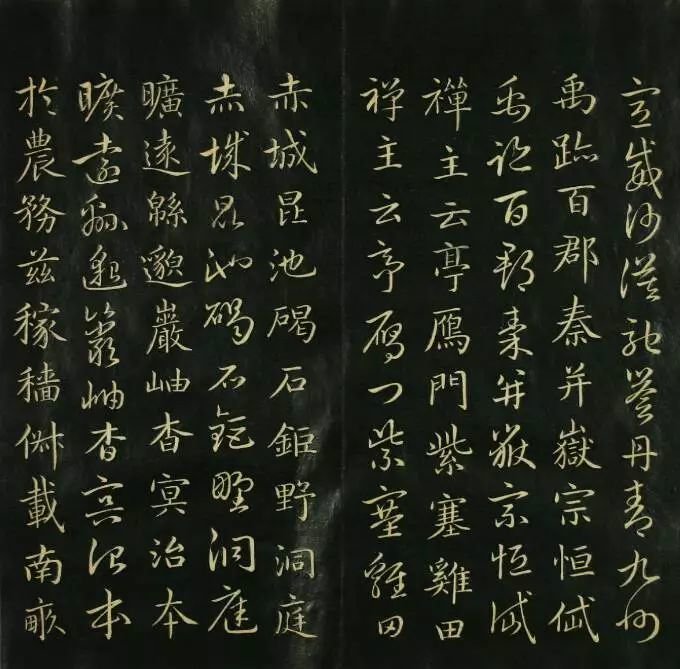 宣威沙漠馳譽丹青九州
禹跡百郡秦并嶽宗恒岱
禹跡百郡秦并嶽宗恒岱
禪主云亭鴈門紫塞雞田
禪主云亭鴈門紫塞雞田
赤城昆池碣石鉅野洞庭
赤城昆池碣石鉅野洞庭
曠遠緜邈巖岫杳冥治本
曠遠緜邈巖岫杳冥治本
於農務茲稼穡俶載南畝